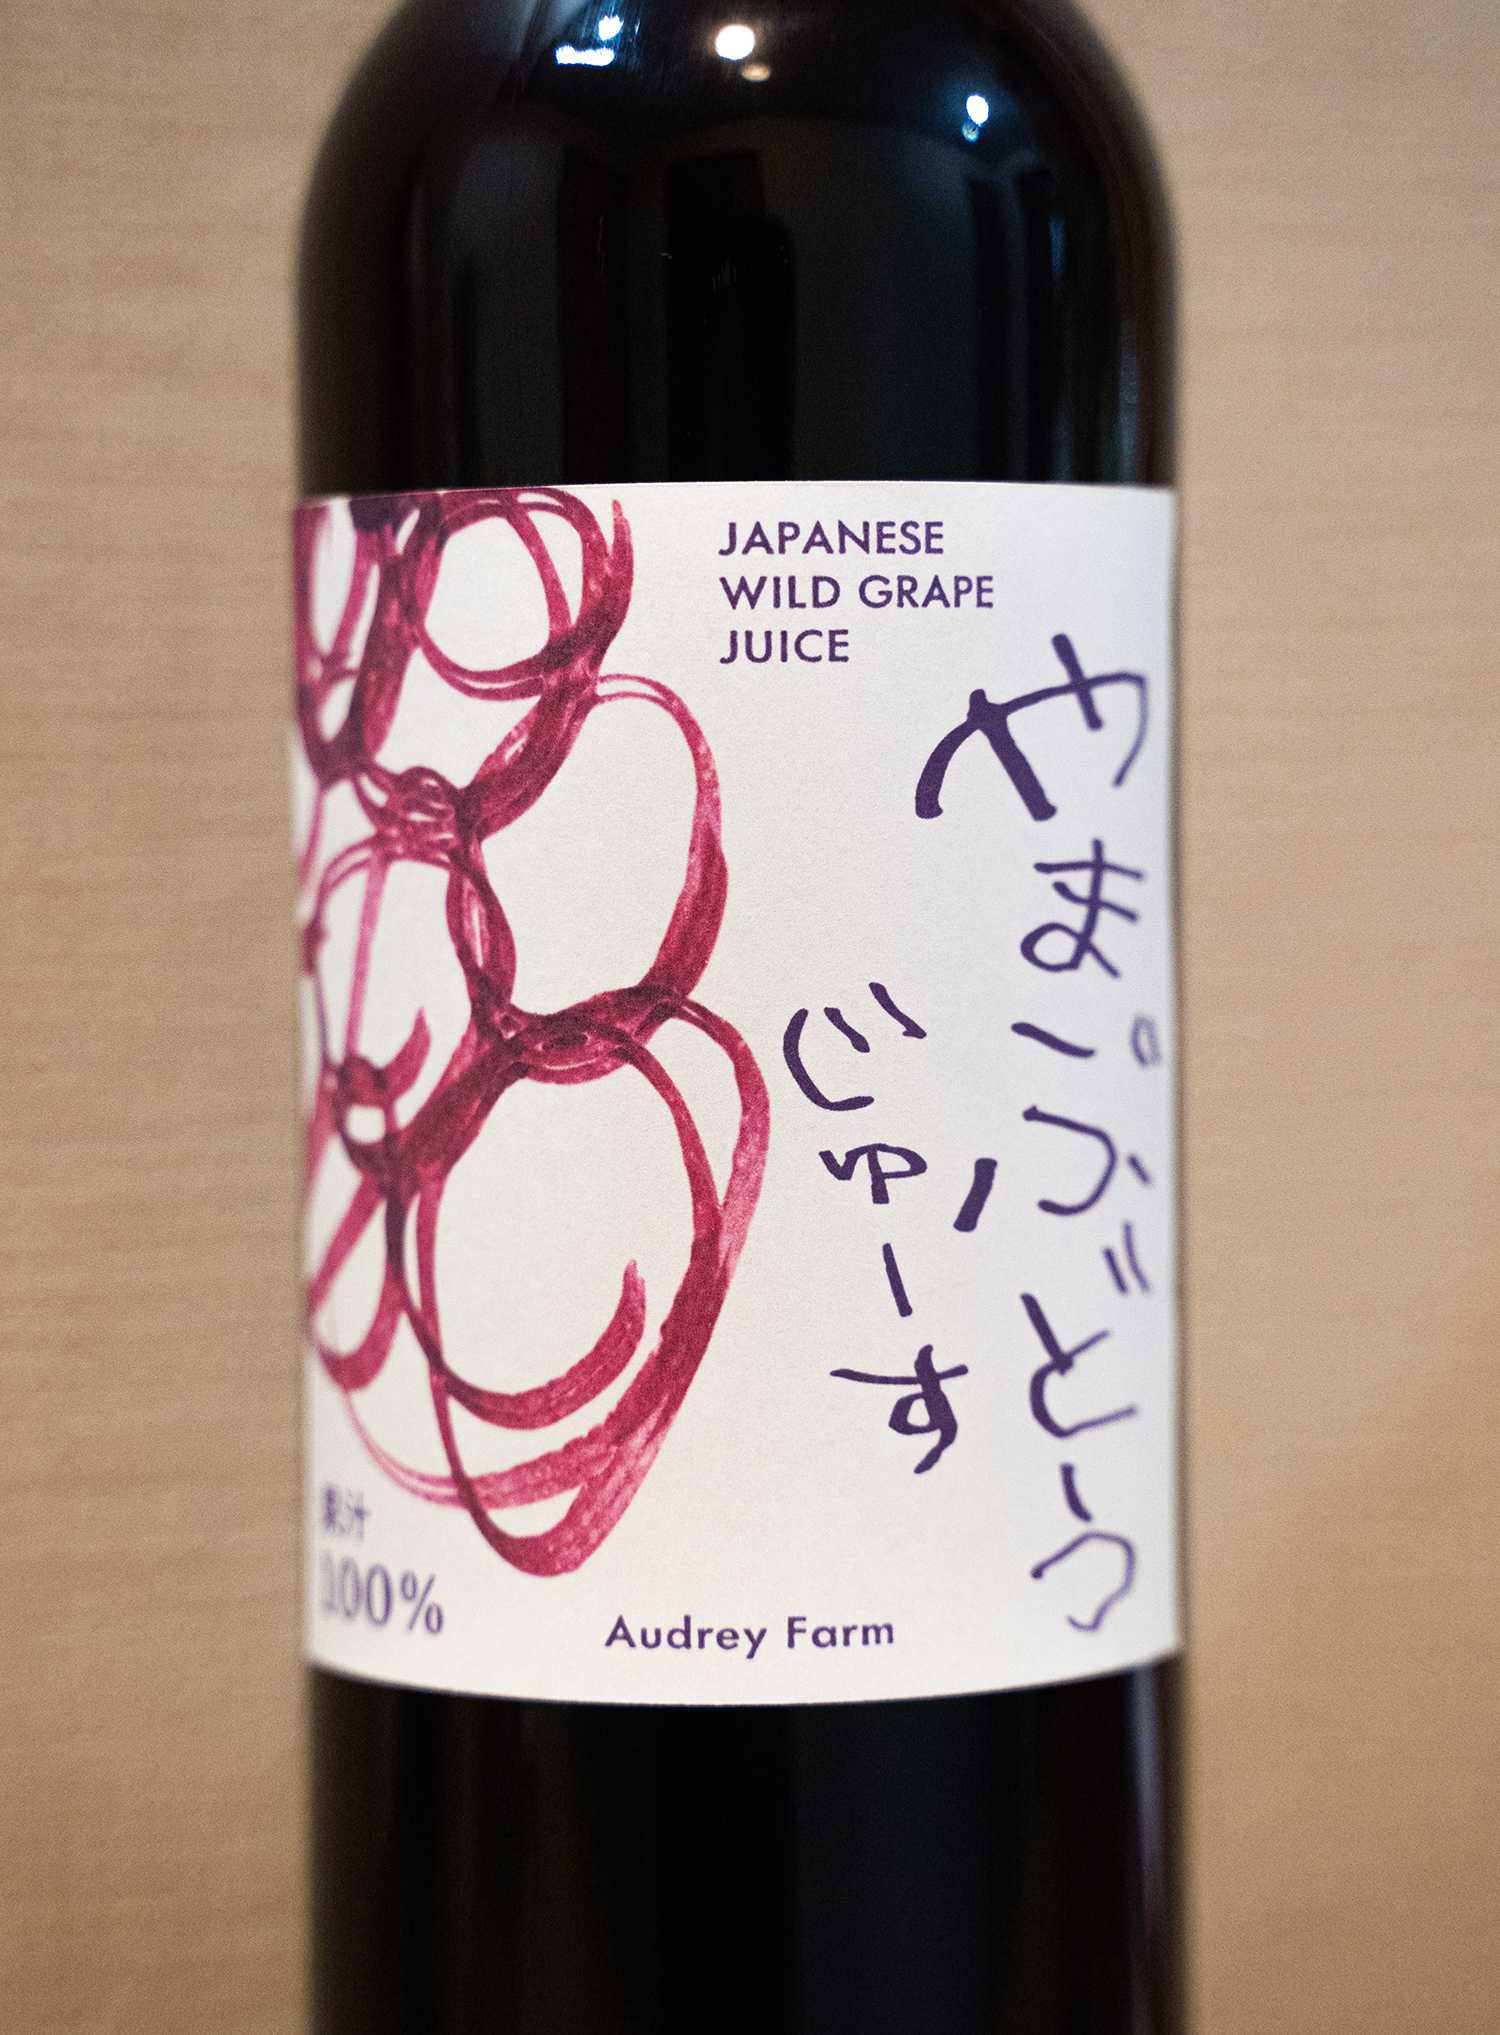 JAPANESE
WILD GRAPE
JUICE
やまぶどう
じゅーす
果汁
100%
Audrey Farm